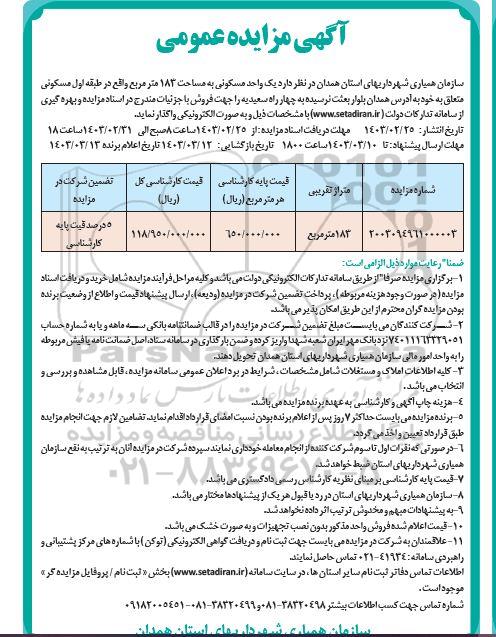 آگهی مزایده عمومی
سازمان همیاری شهرداریهای استان همدان در نظر دارد یک واحد مسکونی به مساحت ۱۸۳ متر مربع واقع در طبقه اول مسکونی
متعلق به خود به آدرس همدان بلوار بعثت نرسیده به چهار راه سعیدیه را جهت فروش با جزئیات مندرج در اسناد مزایده و بهره گیری
از سامانه تدارکات دولت (www.setadiran.ir) با مشخصات ذیل و به صورت الکترونیکی واگذار نماید.
تاریخ انتشار: ۱۴۰۳/۰۲/۲۵ مهلت دریافت اسناد مزایده: از ۱۴۰۳/۰۲/۲۵ ساعت ۸صبح الی ۱۴۰۳/۰۲/۳۱ ساعت ۱۸
مهلت ارسال پیشنهاد: تا ۱۴۰۳/۰۳/۱۰ ساعت ۱۸۰۰ تاریخ بازگشایی: ۱۴۰۳/۰۳/۱۲ تاریخ اعلام برنده ۱۴۰۳/۰۳/۱۳
شماره مزایده متراژ تقریبی قیمت پایه کارشناسی هر متر مربع (ریال) قیمت کارشناسی کل (ریال) تضمین شرکت در مزایده
۲۰۰۳۰۹۴۹۶۱۰۰۰۰۰۳ ۱۸۳مترمربع ۶۵۰/۰۰۰/۰۰۰ ۱۱۸/۹۵۰/۰۰۰/۰۰۰ ۵درصد قیت پایه کارشناسی
ضمنا" رعایت موارد ذیل الزامی است:
۱-برگزاری مزایده صرفا" از طریق سامانه تدارکات الکترونیکی دولت می باشد و کلیه مراحل فرآیند مزایده شامل خرید و دریافت اسناد
مزایده (در صورت وجود هزینه مربوطه)، پرداخت تضمین شرکت در مزایده (ودیعه)، ارسال پیشنهاد قیمت و اطلاع از وضعیت برنده
بودن مزایده گران محترم از این طریق امکان پذیر می باشد.
۲-شرکت کنندگان می بایست مبلغ تضمین شرکت در مزایده را در قالب ضمانتنامه بانکی سه ماهه و یا به شماره حساب
نزد بانک مهر ایران شعبه شهدا واریز کرده و ضمن بارگذاری در سامانه ستاد، اصل ضمانت نامه یا فیش مربوطه
را به واحد امور مالی سازمان همیاری شهرداریهای استان همدان تحویل دهند.
۳-کلیه اطلاعات املاک و مستغلات شامل مشخصات، شرایط در برد اعلان عمومی سامانه مزایده، قابل مشاهده و بررسی و
انتخاب می باشد.
۴-هزینه چاپ آگهی و کارشناسی به عهده برنده مزایده می باشد.
۵-برنده مزایده می بایست حداکثر ۷ روز پس از اعلام برنده بودن نسبت امضای قرارداد اقدام نماید. تضامین لازم جهت انجام مزایده
طبق قرارداد تعیین و اخذ می گردد.
۶-در صورتی که نفرات اول تا سوم شرکت کننده از انجام معامله خودداری نمایند سپرده شرکت در مزایده آنان به ترتیب به نفع سازمان
همیاری شهرداریهای استان ضبط خواهد شد.
۷-قیمت پایه کارشناسی بر مبنای نظریه کارشناس رسمی دادگستری می باشد.
۸-سازمان همیاری شهرداریهای استان در رد یا قبول هر یک از پیشنهادها مختار می باشد.
۹-به پیشنهادات مبهم و مخدوش ترتیب اثر داده نخواهد شد.
۱۰-قیمت اعلام شده فروش واحد مذکور بدون نصب تجهیزات و به صورت خشک می باشد.
۱۱-علاقمندان به شرکت در مزایده می بایست جهت ثبت نام و دریافت گواهی الکترونیکی (توکن) با شماره های مرکز پشتیبانی و
راهبردی سامانه: ۴۱۹۳۴-۰۲۱ تماس حاصل نمایند.
اطلاعات تماس دفاتر ثبت نام سایر استان ها، در سایت سامانه (www.setadiran.ir) بخش « ثبت نام / پروفایل مزایده گر »
موجود است.
شماره تماس جهت کسب اطلاعات بیشتر ۳۸۳۲۰۴۹۸-۰۸۱ و ۳۸۳۲۰۴۹۹-۰۸۱-۰۹۱۸۲۰۰۵۴۵۱
سازمان همیاری شهرداریهای استان همدان